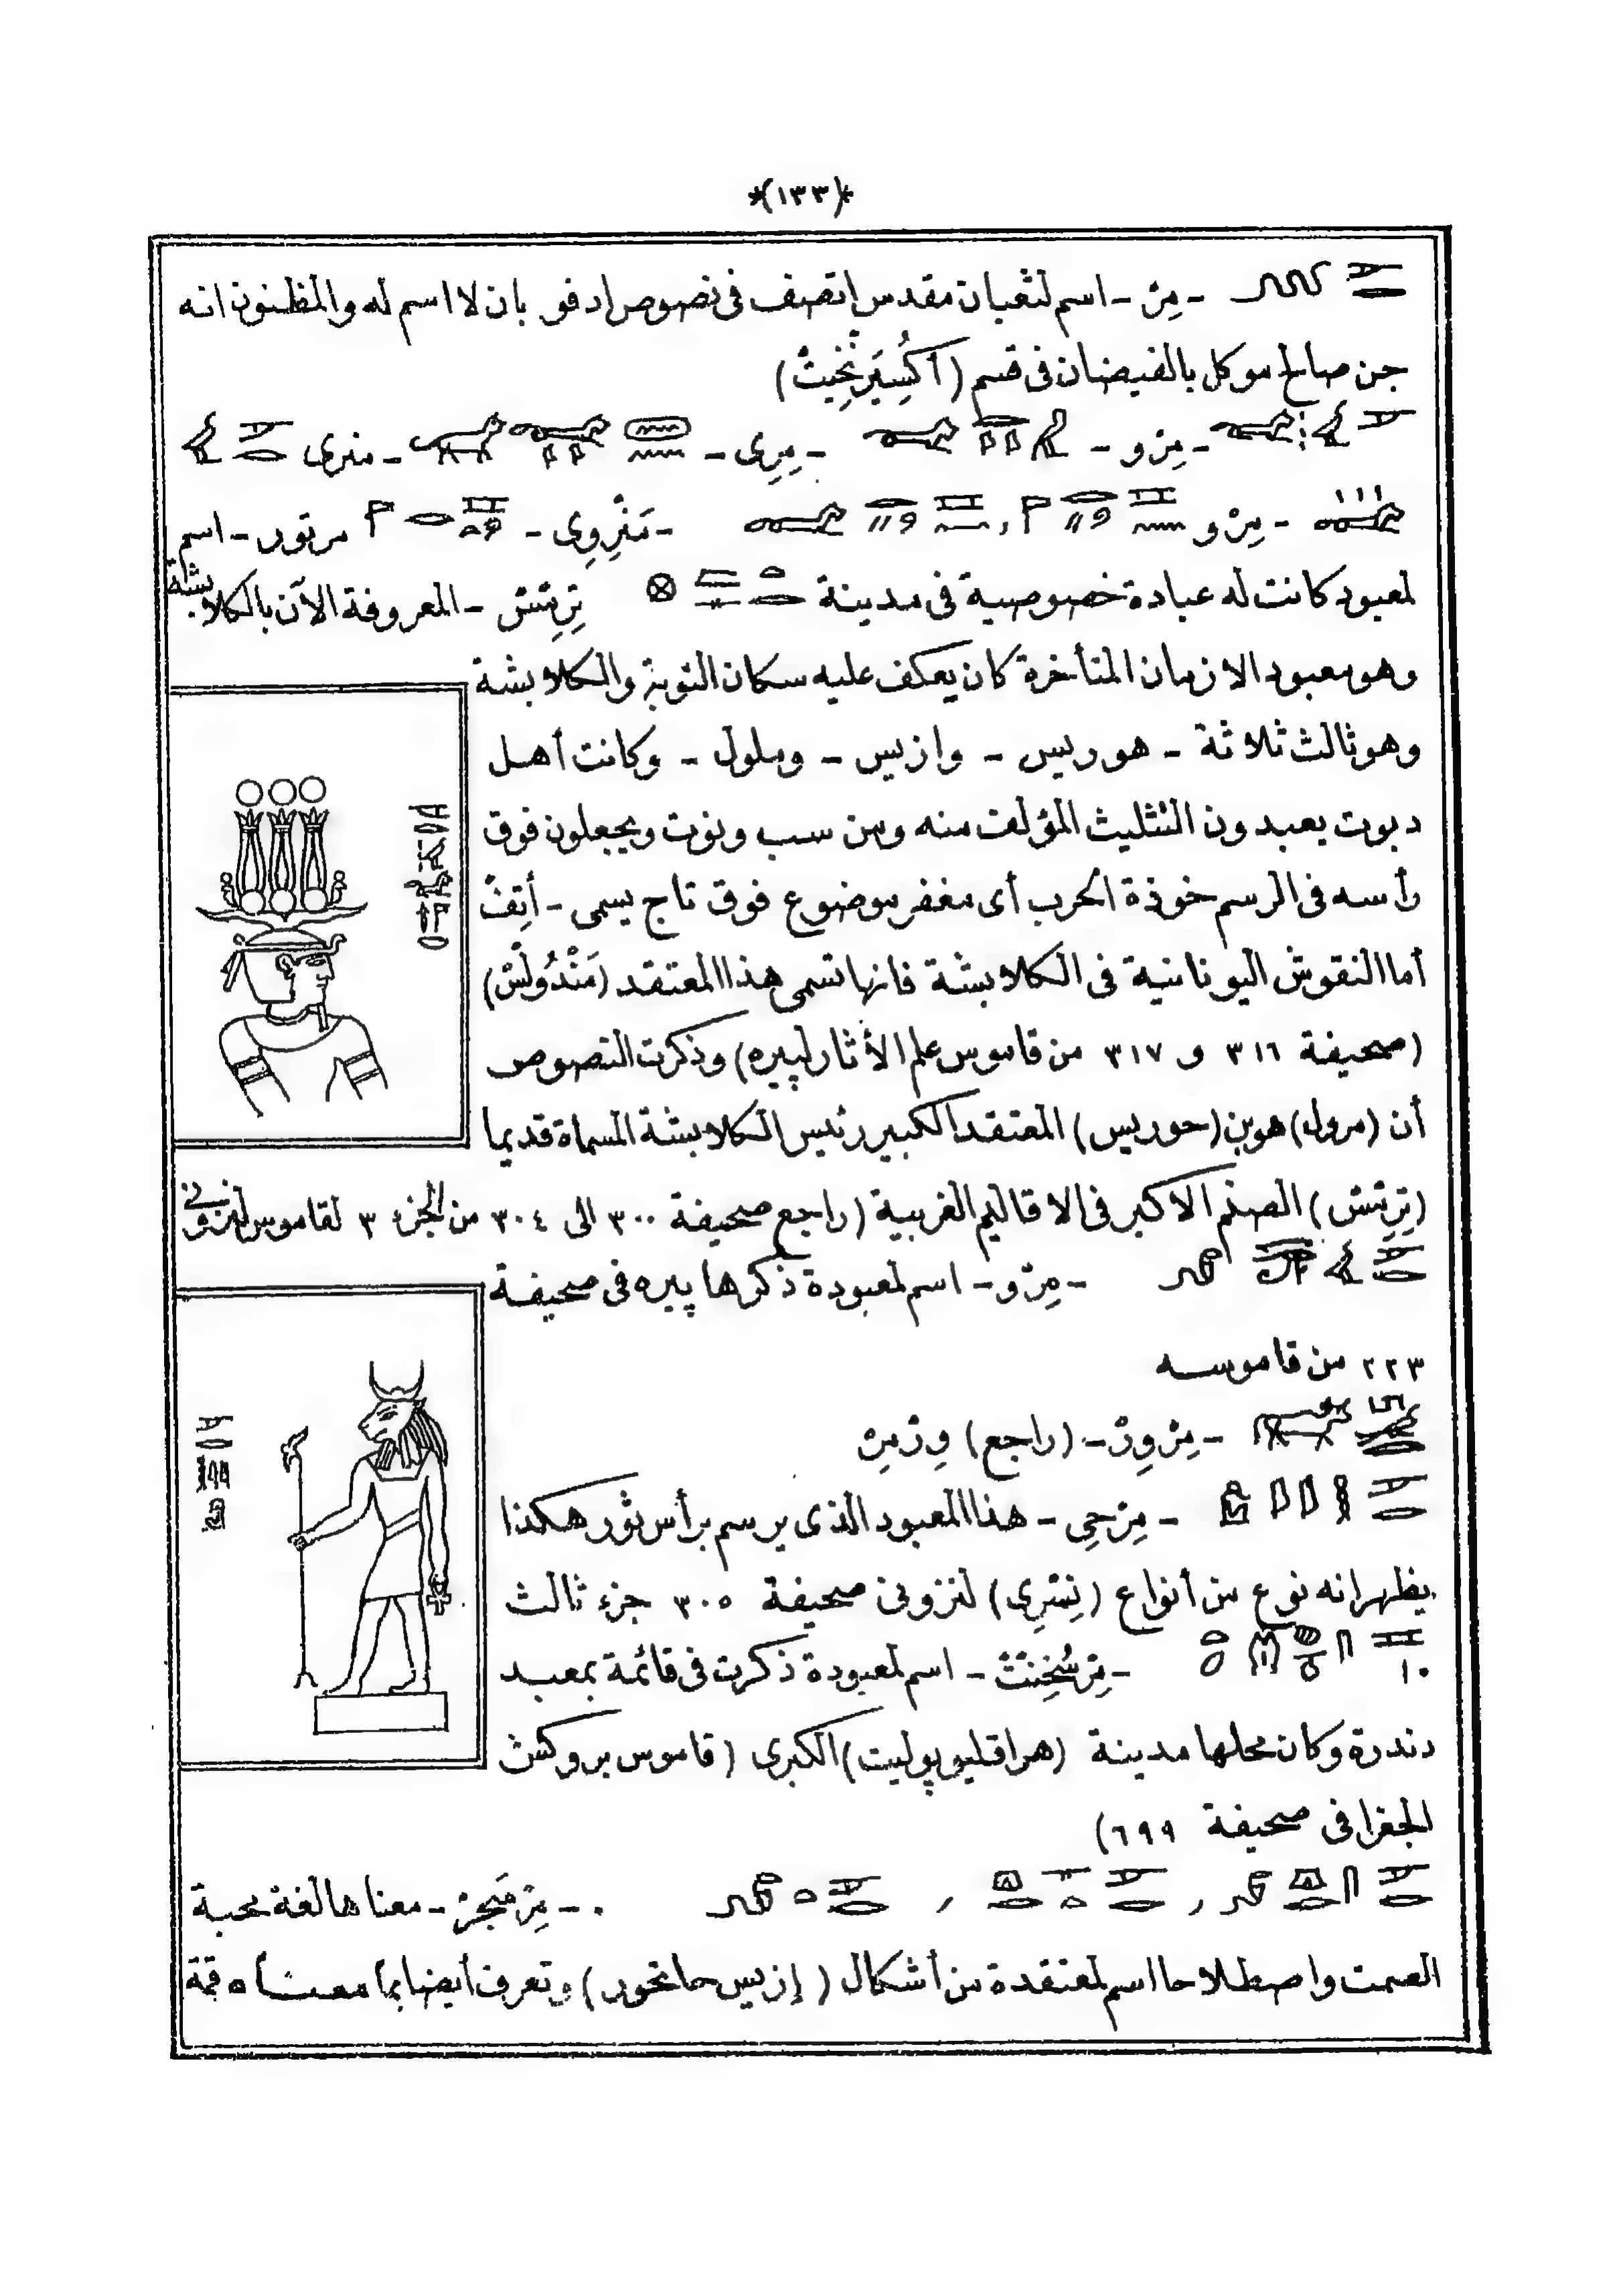 *(١٣٣)*
- مِرْ - اسم لثعبان مقدس اتصف فى نصوص ادفو بان لا اسم له والمظنون انه
جن صالح موكل بالفيضان فى قسم (أكسيرنخيت)
- مِرْو - - مِرِى - - منرى
- مِرْو - مَنْرِوِى - مرتور - اسم
لمعبود كانت له عبادة خصوصية فى مدينة تِرِتِسْ - المعروفة الآن بالكلابشة
وهو معبود الازمان المتأخرة كان يعكف عليه سكان النوبة والكلابشة
وهو ثالث ثلاثة - هوريس - وازيس - وملول - وكانت أهل
دبوت يعبدون التثليث المؤلف منه ومن سب ونوت ويجعلون فوق
رأسه فى الرسم خوذة الحرب أى مغفر موضوع فوق تاج يسمى - أتِفْ
أما النقوش اليونانية فى الكلابشة فانها تسمى هذا المعتقد (مَنْدُولَسْ)
(صحيفة ٣١٦ و ٣١٧ من قاموس علم الأثار لپيره) وذكرت النصوص
أن (مرول) هو بن (حوريس) المعتقد الكبير رئيس الكلابشة المسماة قديما
(تِرِتِسْ) الصنم الاكبر فى الاقاليم الغربية (راجع صحيفة ٣٠٠ الى ٣٠٤ من الجزء ٣ لقاموس لنزونى
- مِرْو - اسم لمعبودة ذكرها پيره فى صحيفة
٢٢٣ من قاموسه
- مِرْوِرْ - (راجع) وِرْمِرْ
- مِرْحِى - هذا المعبود الذى يرسم برأس ثور هكذا
يظهر انه نوع من أنواع (نِسْرِى) لنزونى صحيفة ٣٠٥ جزء ثالث
- مِرْسُخِنْتْ - اسم لمعبودة ذكرت فى قائمة بمعبد
دندرة وكان محلها مدينة (هراقليوپوليت) الكبرى (قاموس بروكش
الجغرافى صحيفة ٦٩٩)
- مِرْسَجِرْ - معناها لغة محبة
الصمت واصطلاحا اسم لمعتقدة من أشكال (إزيس حاتحور) وتعرف أيضا بما معناه قمة